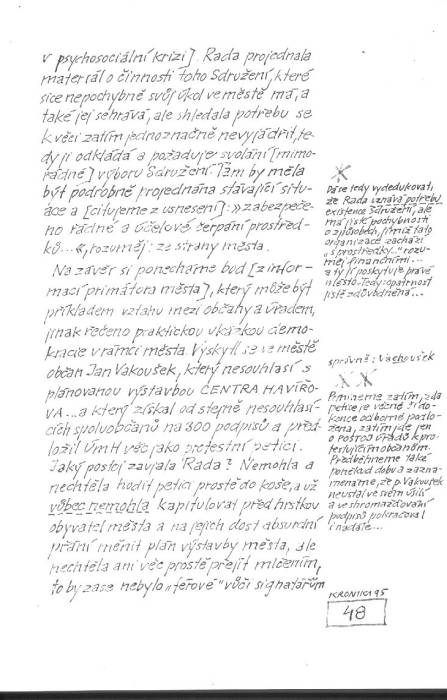 v psychosociální krizi]. Rada projednala
materiál o činnosti toho Sdružení, které
sice nepochybně svůj úkol ve městě má, a
také jej sehrává, ale shledala potřebu se
k věci zatím jednoznačně nevyjádřit, te-
dy ji odkládá a požaduje svolání [mimo-
řádné] výboru Sdružení. Tam by měla
být podrobně projednána stávající situ-
ace a [citujeme z usnesení]: »zabezpeče-
no řádné a účelové čerpání prostřed-
ků...«, rozuměj: ze strany města.
Na závěr si ponecháme bod [z infor-
mací primátora města], který může být
příkladem vztahu mezi občany a úřadem,
jinak řečeno praktickou ukázkou demo-
kracie v rámci města. Vyskytl se ve městě
občan Jan Vakoušek, který nesouhlasí s
plánovanou výstavbou CENTRA HAVÍŘO-
VA... a který získal od stejně nesouhlasí-
cích spoluobčanů na 300 podpisů a před-
ložil ÚmH věc jako protestní petici.
Jaký postoj zaujala Rada? Nemohla a
nechtěla hodit petici prostě do koše, a už
vůbec nemohla kapitulovat před hrstkou
obyvatel města a na jejich dost absurdní
přání měnit plán výstavby města, ale
nechtěla ani věc prostě přejít mlčením,
to by zase nebylo „férové" vůči signatářům
X
Dá se tedy vydedukovati,
že Rada uznává potřebu
existence Sdružení, ale
má jisté pochybnosti
o způsobech, jimiž tato
organizace zachází
s prostředky... rozu-
měj finančními...
a ty jí poskytuje právě
město. Tedy: opatrnost
jistě zdůvodněná...
správně: Vachoušek
X X
Pomineme zatím, zda
petice je věcně či do-
konce odborně podlo-
žena, zatím jde jen
o postoj úřadů k pro-
testujícím občanům.
Předběhneme také
poněkud dobu a zazna-
menáme, že p. Vakoušek
neustal ve svém úsilí
a ve shromažďování
podpisů pokračoval
i nadále...
KRONIKA 95
48